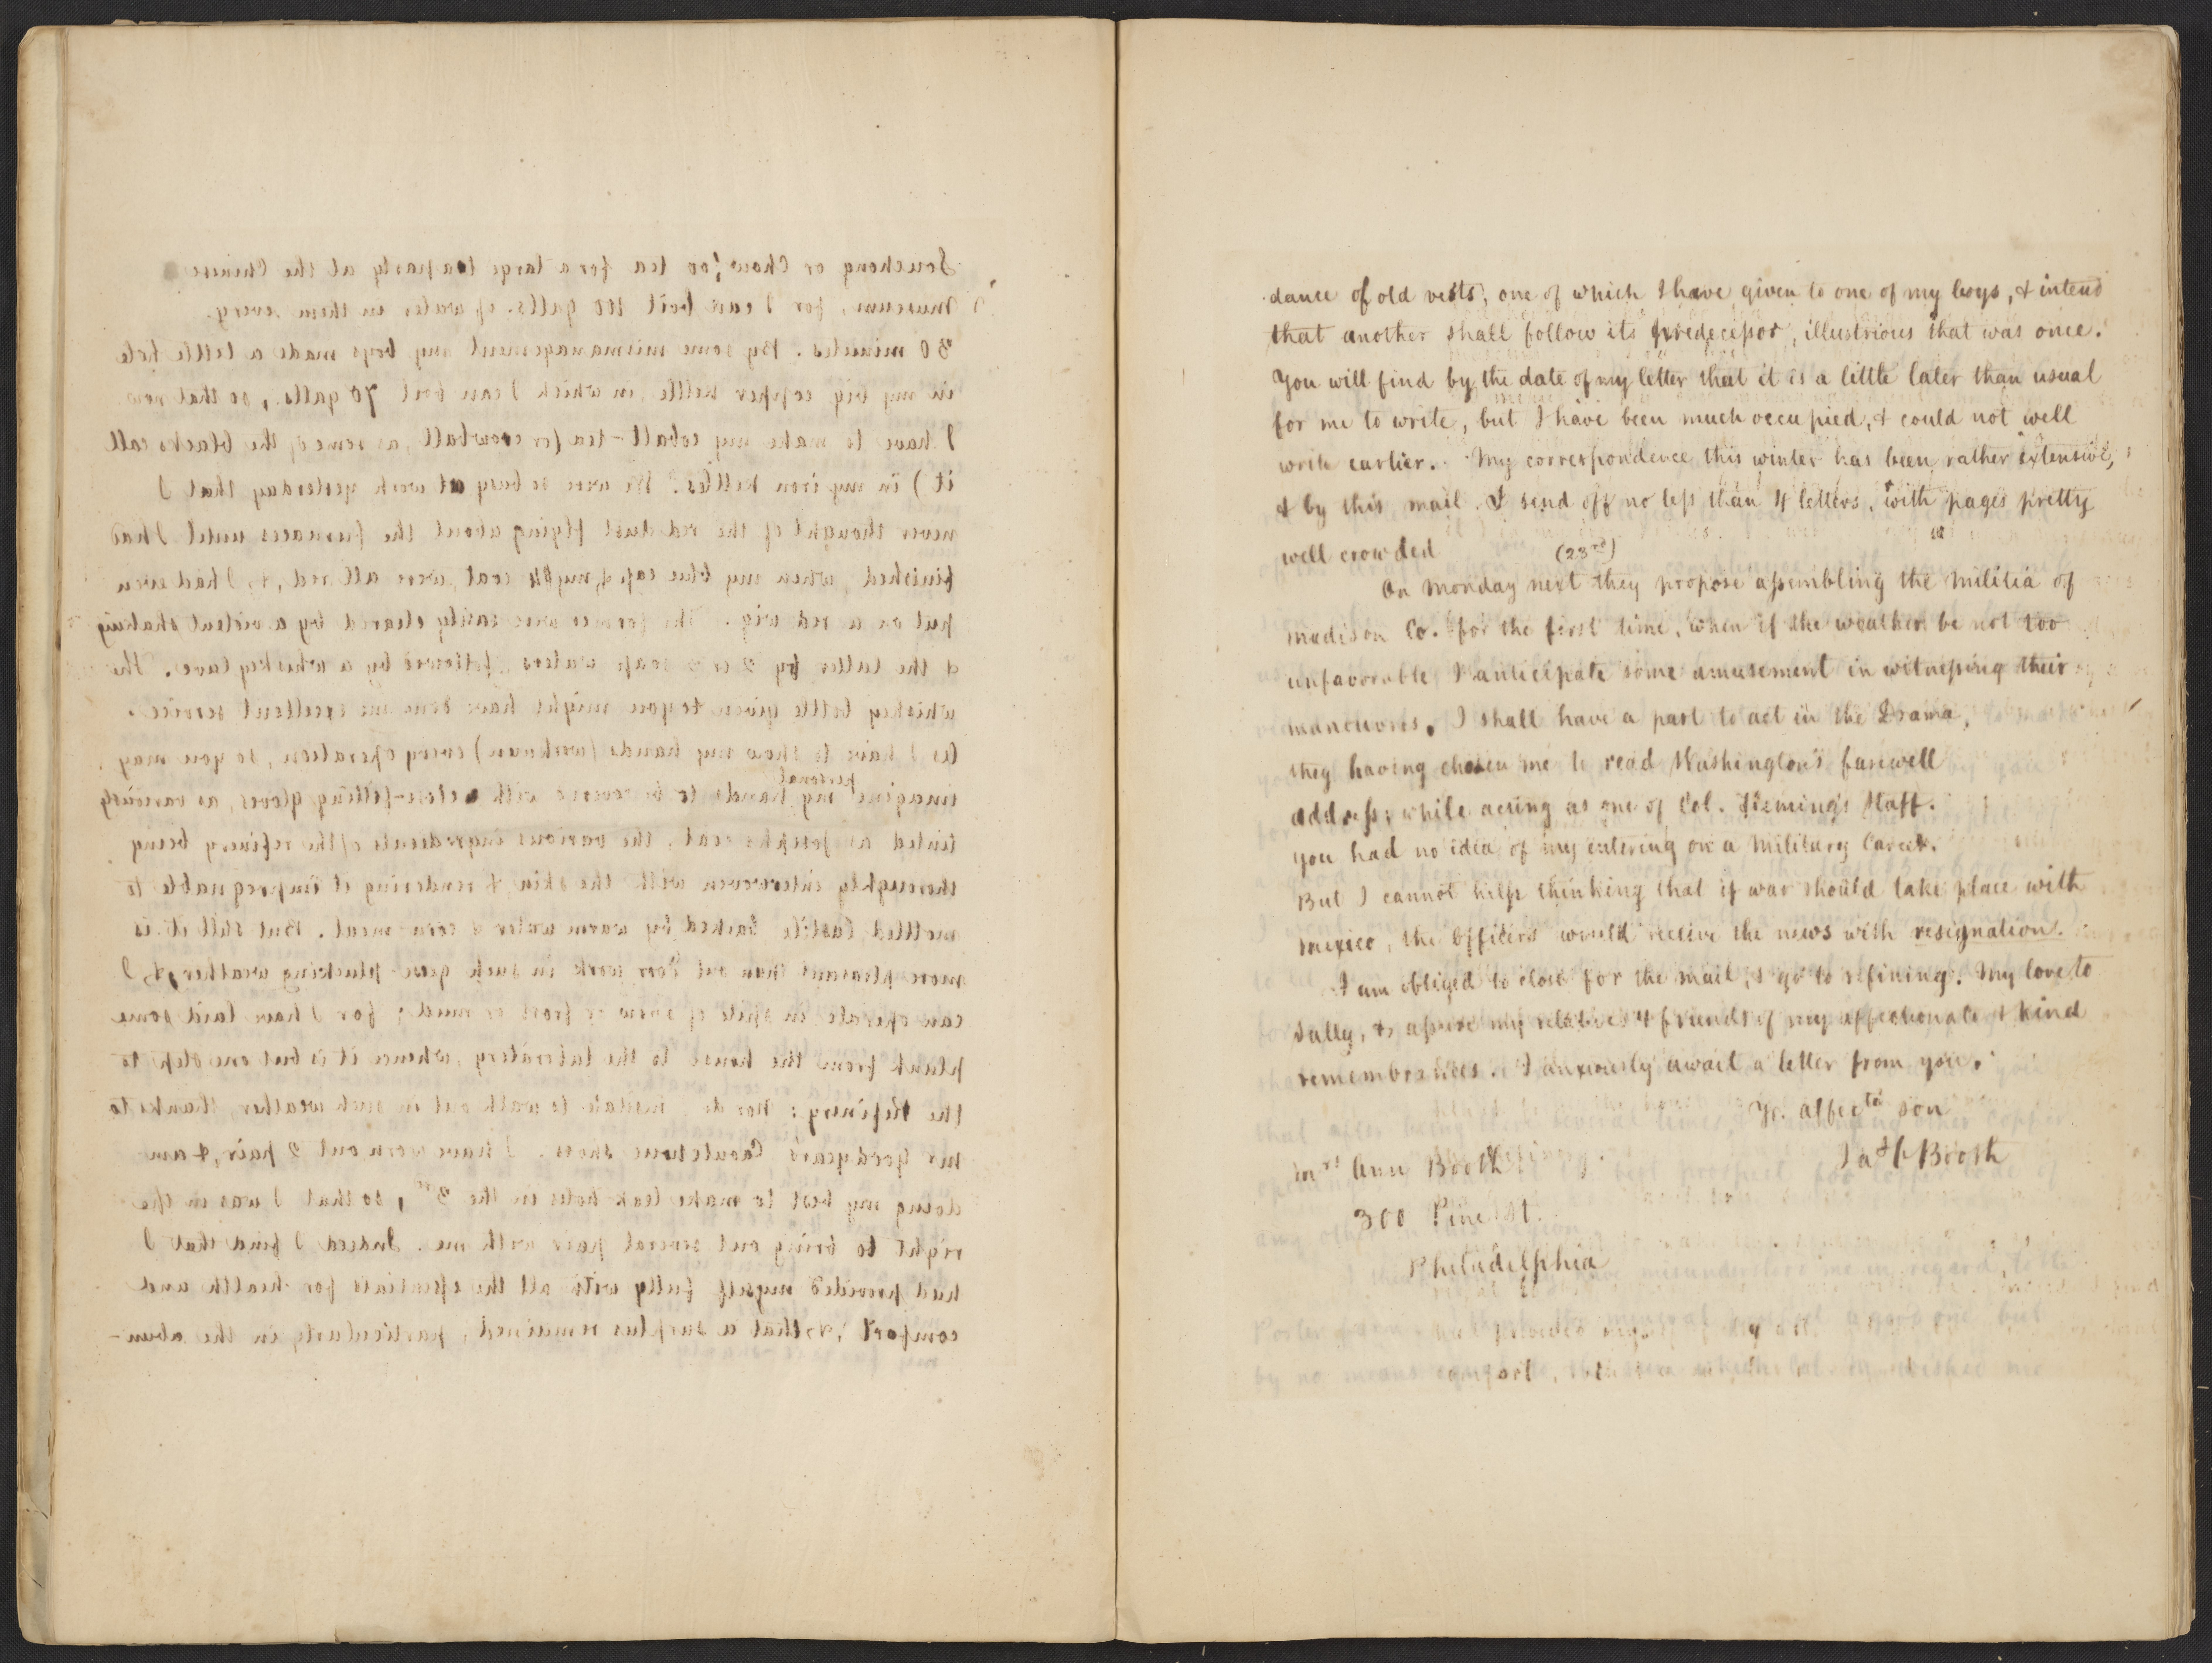 Souchong or Chow, for tea for a large tea party at the Chinese
museum, for I can boil 100 galls. of water in them every
30 minutes. By some mismanagement my boys made a little hole
in my big copper kettle, in which I can boil 70 galls., so that now
I have to make my cobalt-tea (or crowball, as some of the blacks call
it) in my iron kettles. We were so busy at work yesterday that I
never thought of the red dust flying about the furnaces until I had
finished, when my blue cap & my coat were all red, & I had even
put on a red wig. The former were easily cleared by a violent shaking
& the latter by 2 or 3 soap waters followed by a whiskey lave. The
whiskey bottle given to you might have done me excellent service.
As I have to show my hands (workmen) every operation, so you may
personal
imagine my hands to be covered with close-fitting gloves, as variously
tinted as Joseph's coat, the various ingredients of the refinery being
thoroughly interwoven with the skin & rendering it impregnable to
mottled Castile backed by warm water & corn meal. But still it is
more pleasant than out door work in such goose-plucking weather, & I
can operate in spite of snow or frost or mud; for I have laid some
plank from the house to the laboratory, whence it is but one step to
the Refinery; nor do I hesitate to walk out in such weather, thanks to
Mr Goodyear's Caoutchouc shoes. I have worn out 2 pair, & am
doing my best to make leak holes in the 3rd, so that I was in the
right to bring out several pair with me. Indeed I find that I
had provided myself fully with all the essentials for health and
comfort, & that a surplus remained, particularly in the abun-
dance of old vests, one of which I have given to one of my boys, & intend
that another shall follow its predecessor, illustrious that was once.
You will find by the date of my letter that it is a little later than usual
for me to write, but I have been much occupied, & could not well
write earlier. My correspondence this winter has been rather extensive,
& by this mail I send off no less than 4 letters, with pages pretty
well crowded
(23rd)
On Monday next they propose assembling the Militia of
Madison Co. for the first time, when if the weather be not too
unfavorable I anticipate some amusement in witnessing their
maneuvres. I shall have a part to act in the Drama,
they having chosen me to read Washington's farewell
address, while acting as one of Col. Fleming's Staff.
You had no idea of my entering on a Military Career.
But I cannot help thinking that if war should take place with
Mexico, the Officers would receive the news with resignation.
I am obliged to close for the mail, & go to refining. My love to
Sally, & assure my relatives & friends of my affectionate & kind
remembrances. I anxiously await a letter from you.
Yr. affecte son
Jas C Booth
Mrs Ann Booth
300 Pine St.
Philadelphia